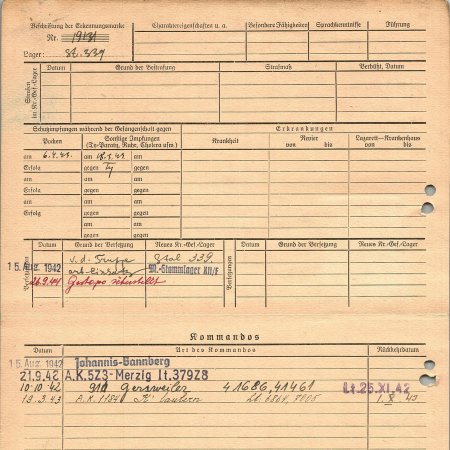 Beschriftung der Erkennungsmarke
Nr. 1913
Lager: St. 339
Charaktereigenschaften u. a.
Besondere Fähigkeiten
Sprachkenntnisse
Führung
Strafen im Kr.-Gef.-Lager
Datum
Grund der Bestrafung
Strafmaß
Verbüßt, Datum
Schutzimpfungen während der Gefangenschaft gegen
Erkrankungen
Pocken
Sonstige Impfungen
(Ty-Paraty, Ruhr, Cholera usw.)
Krankheit
Revier
von bis
Lazarett-Krankenhaus
von bis
am am am
Erfolg gegen Ty gegen
am am am
Erfolg gegen gegen
am am am
Erfolg gegen gegen
am am
gegen gegen
Versetzungen
Datum
Grund der Versetzung
Neues Kr.-Gef.-Lager
Versetzungen
Datum
Grund der Versetzung
Neues Kr.-Gef.-Lager
15. Aug. 1942
v. d. Stal 339
M.-Stammlager XII/F
26.9.44 Gestapo
Kommandos
Datum
Art des Kommandos
Rückkehrdatum
15. Aug. 1942 Johannis-Bannberg
21.9.42 A.K.5Z3-Merzig lt.379Z8
10.10.42 910 Gersweiler 41686, 41461 Lt.25.XI.42
13.3.43 A.K. 1184